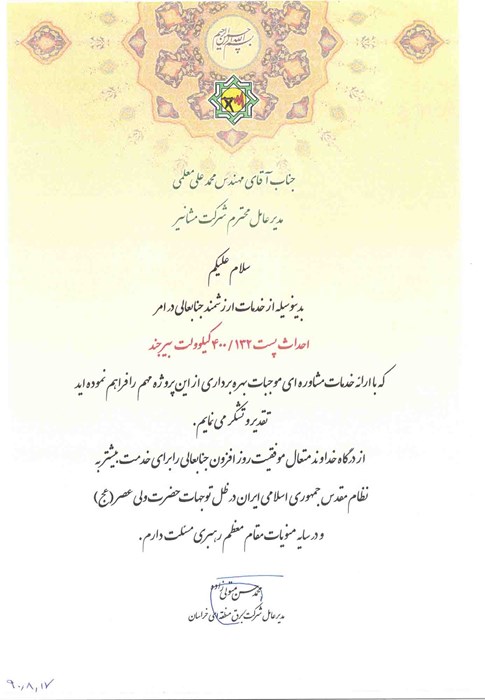 بسم الله الرحمن الرحیم
جناب آقای مهندس محمد علی معلمی
مدیر عامل محترم شرکت مشانیر
سلام علیکم
بدینوسیله از خدمات ارزشمند جنابعالی در امر
احداث پست ۴۰۰/۱۳۲ کیلوولت بیرجند
که با ارائه خدمات مشاوره ای موجبات بهره برداری از این پروژه مهم را فراهم نموده اید
تقدیر و تشکر می نمایم.
از درگاه خداوند متعال موفقیت روز افزون جنابعالی را برای خدمت بیشتر به
نظام مقدس جمهوری اسلامی ایران در ظل توجهات حضرت ولی عصر (عج)
و در سایه منویات مقام معظم رهبری مسئلت دارم.
محمد حسن متولی زاده
مدیر عامل شرکت برق منطقه ای خراسان
۹۰،۸،۱۷